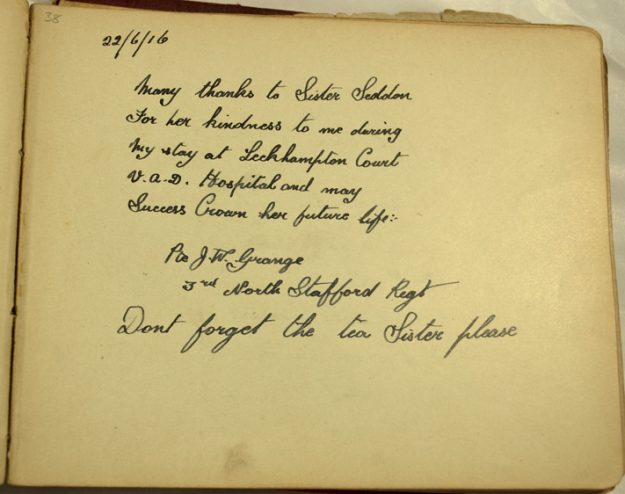 38
22/6/16
Many thanks to Sister Seddon
For her kindness to me during
My stay at Leckhampton Court
V.A.D. Hospital and may
Success Crown her future life:-
Pte J.W. Grange
3rd North Stafford Regt
Dont forget the tea Sister please